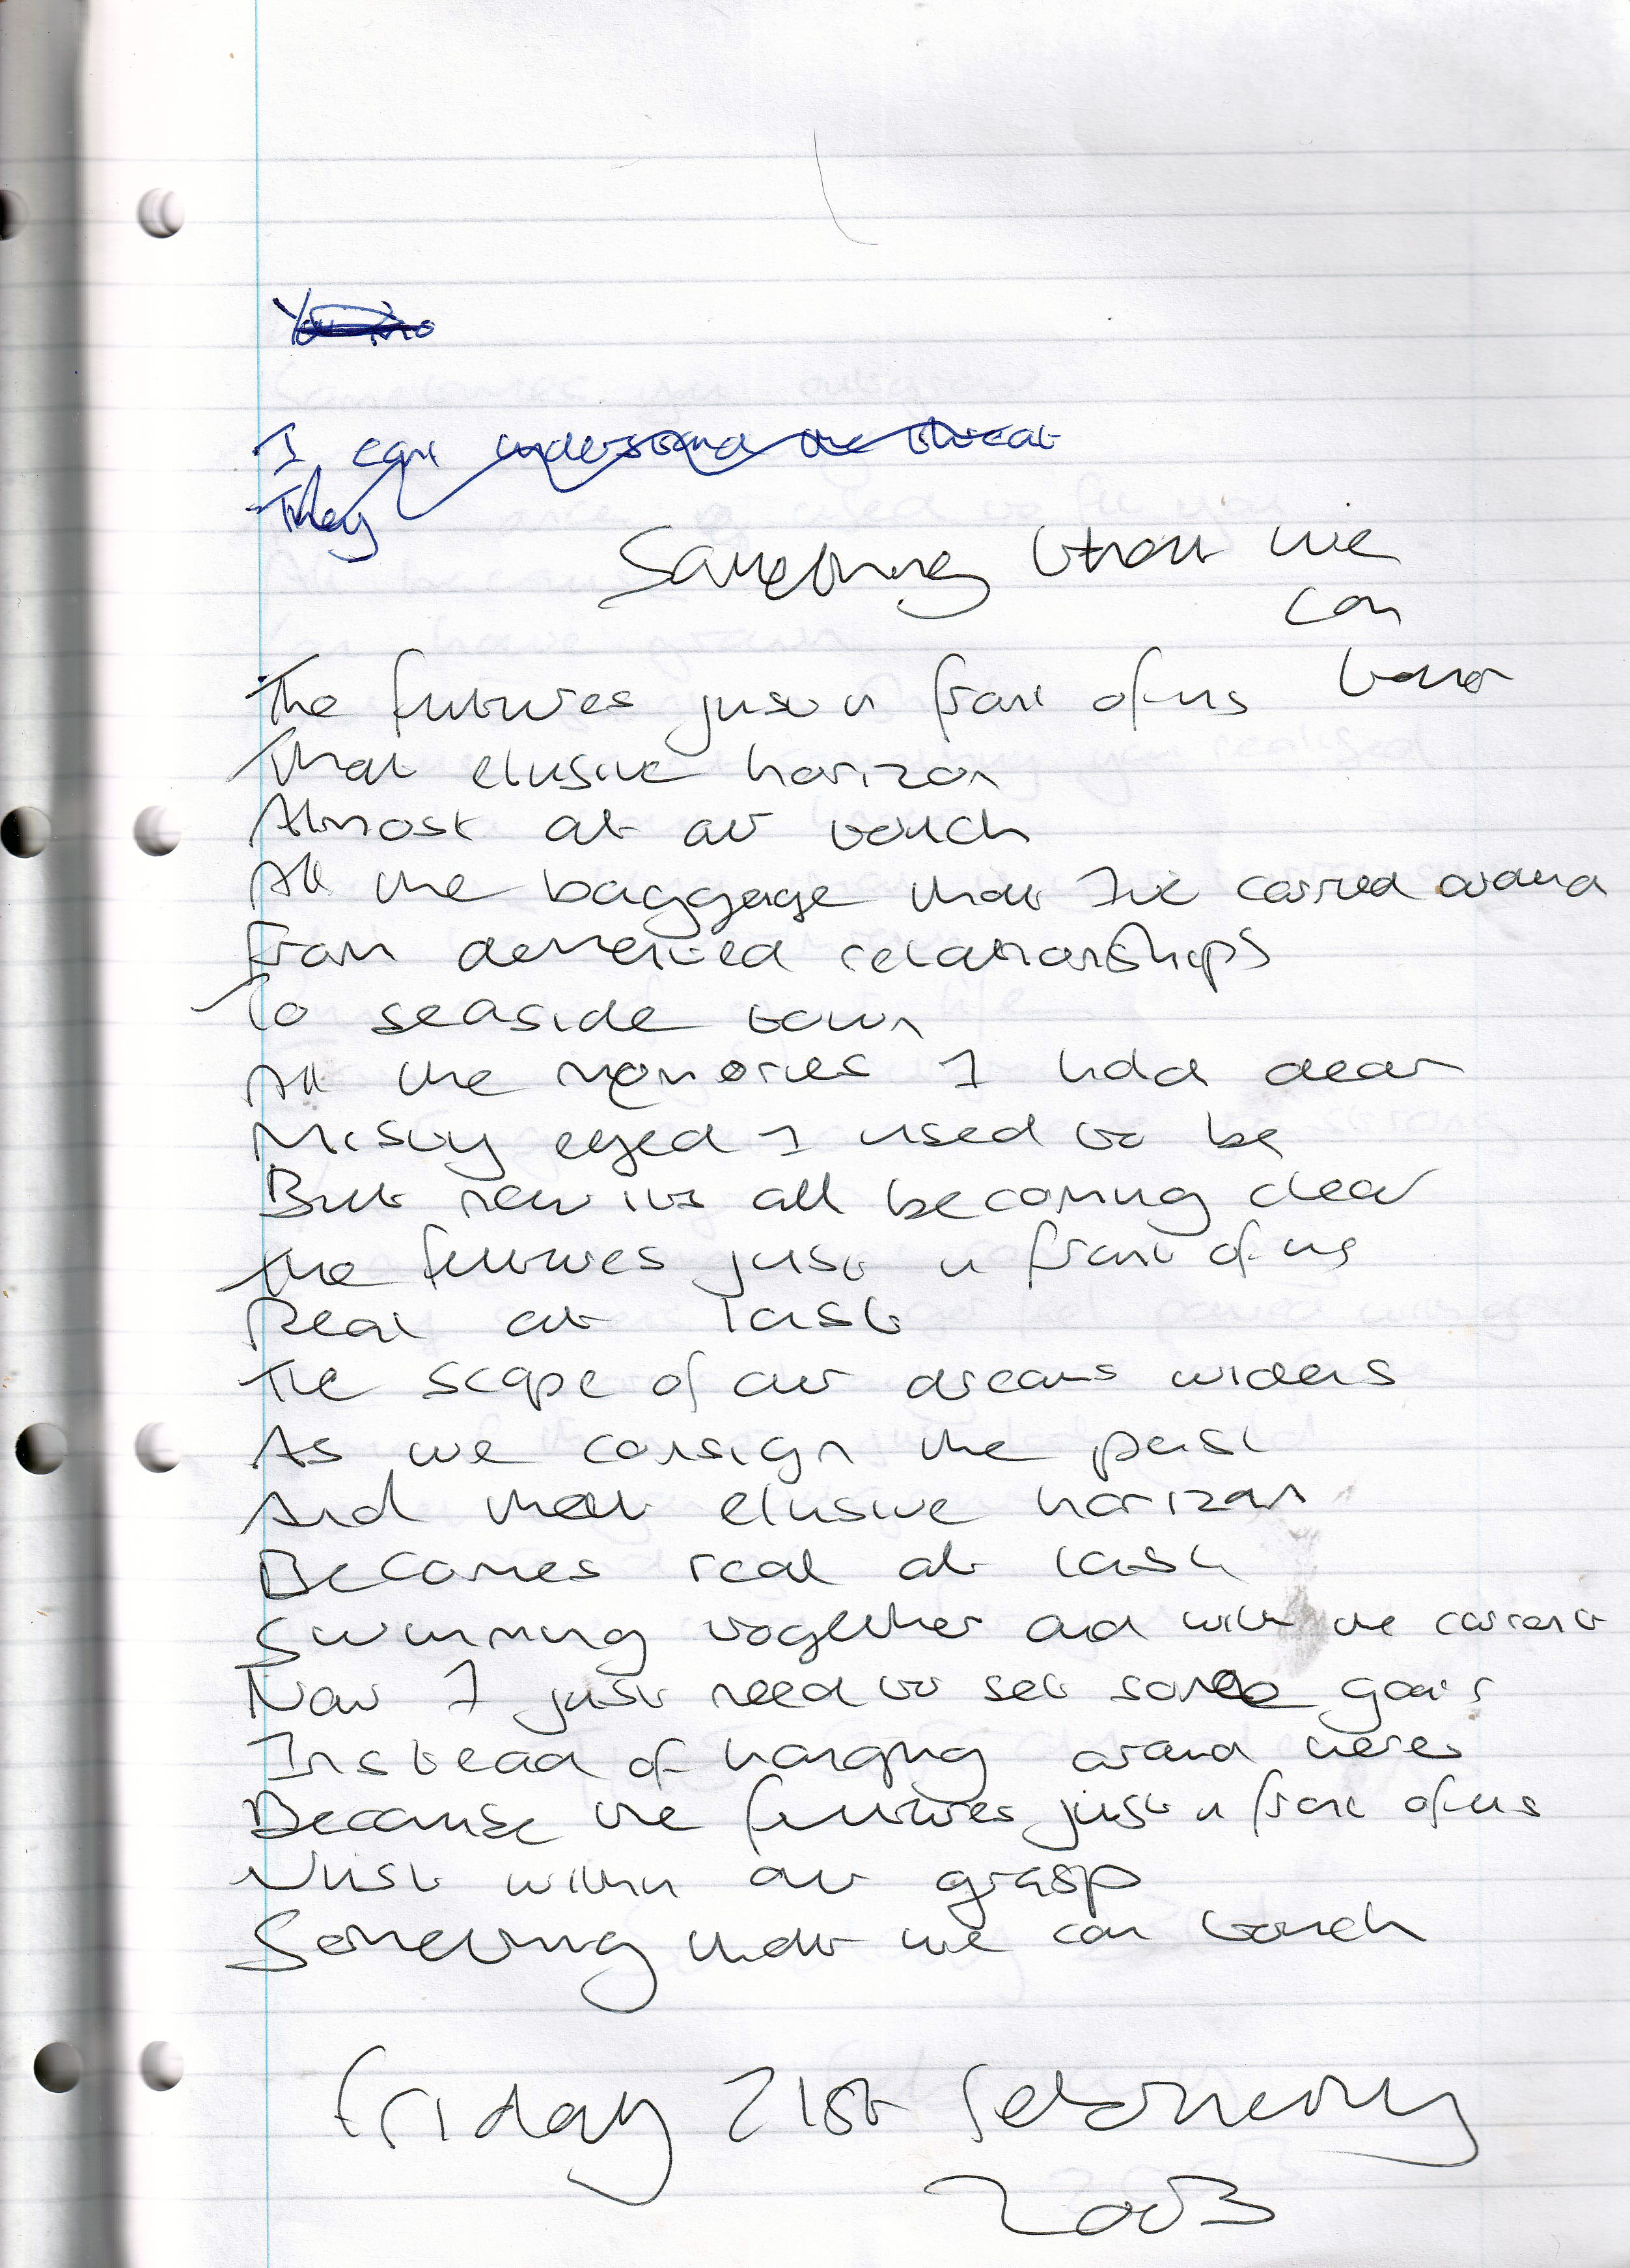 You
I can understand the threat
They
Something that we
can
touch
The futures just in front of us
That elusive horizon
Almost at our touch
All the baggage that I've carried around
From demented relationships
To seaside town
All the memories I hold dear
Misty eyed I used to be
But now its all becoming clear
The futures just in front of us
Real at last
The scope of our dreams widens
As we consign the past
And that elusive horizon
Becomes real at last
Swimming together and with the current
Now I just need to set some goals
Instead of hanging around here
Because the futures just in front of us
Just within our grasp
Something that we can touch
Friday 21st February
2003